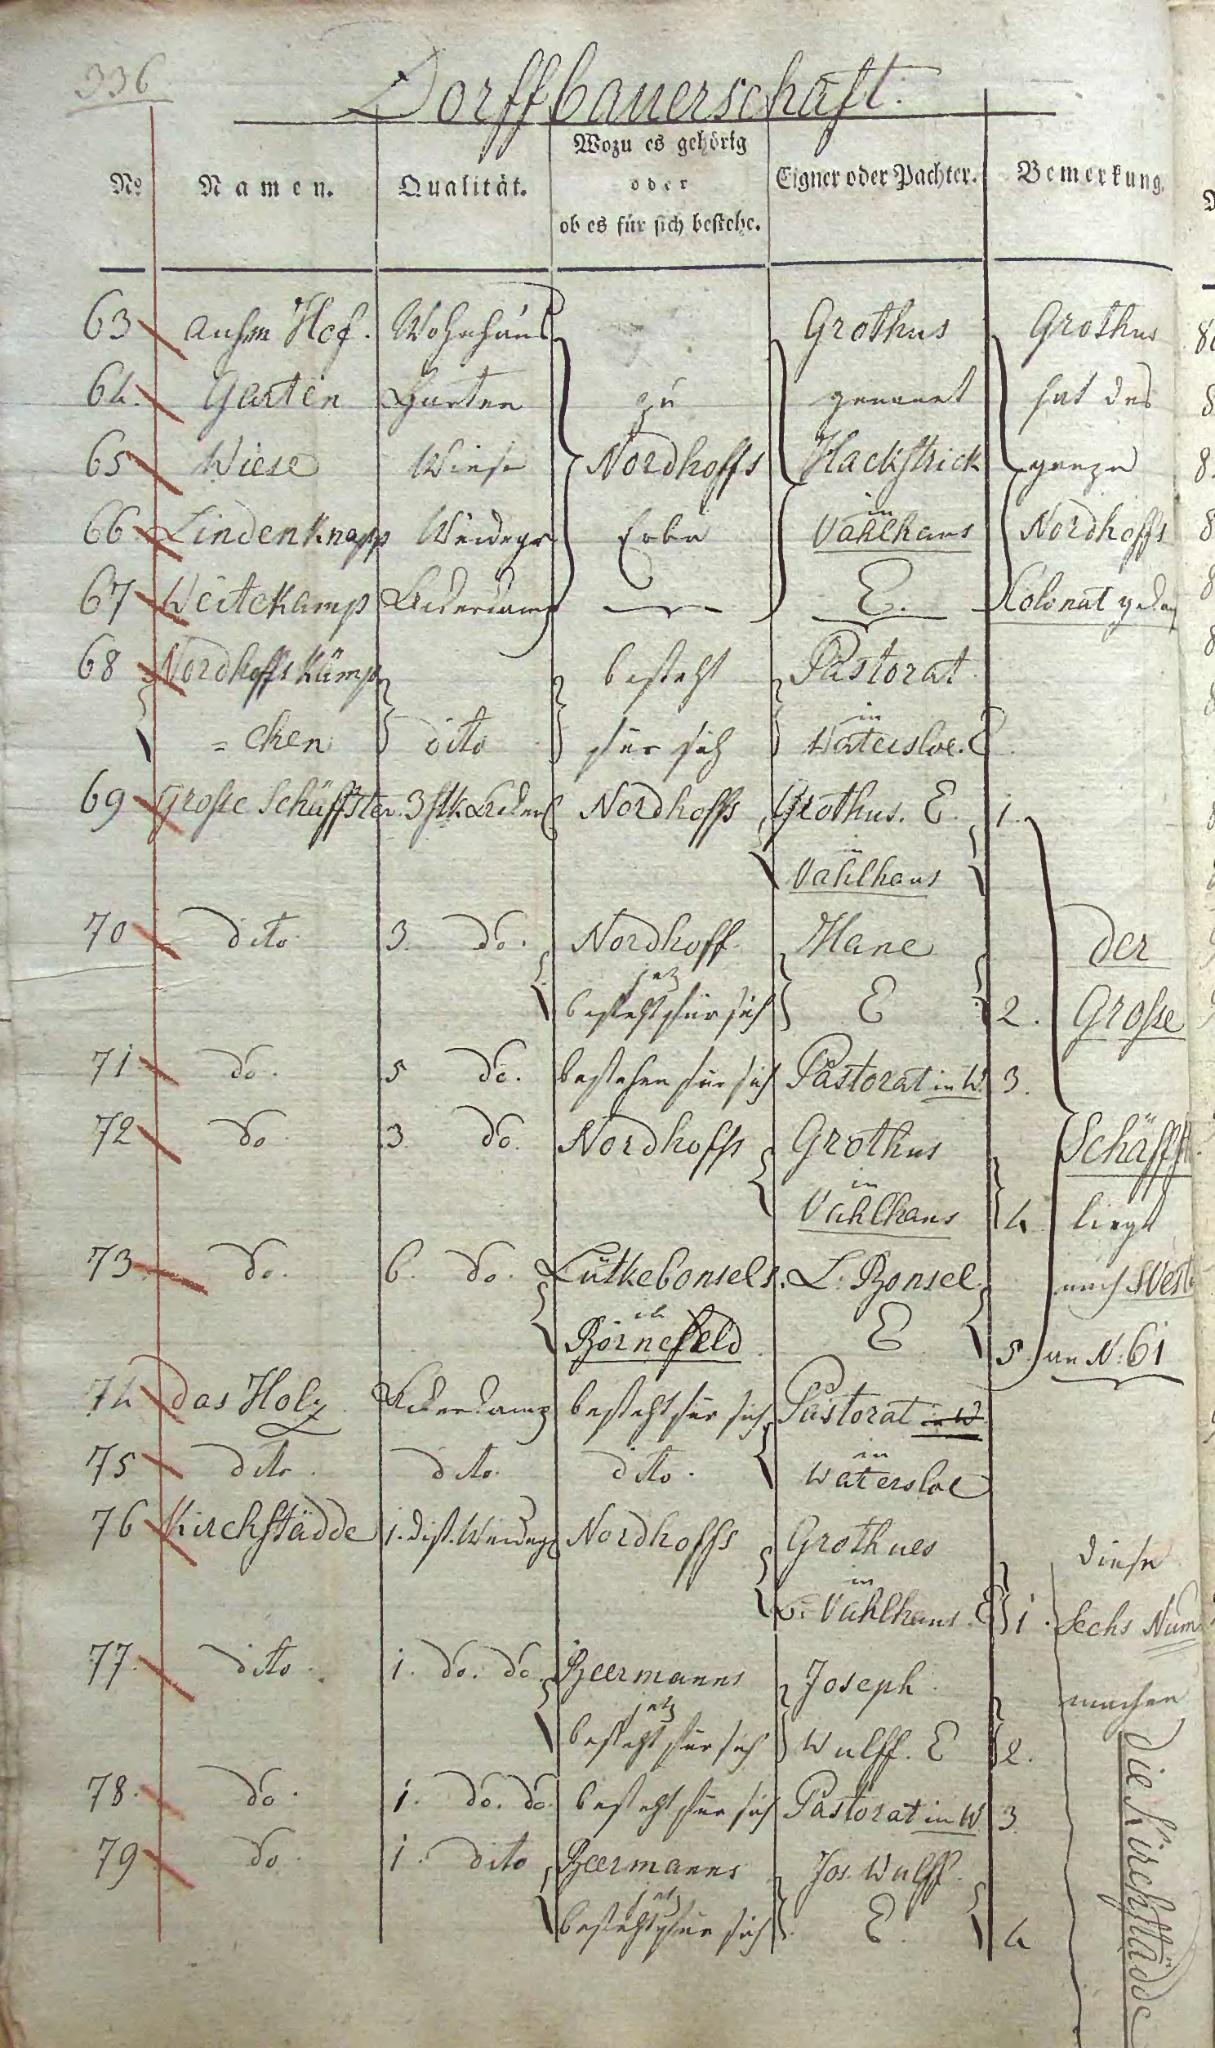 336
Dorffbauerschaft.
No Namen. Qualität. Wozu es gehörig oder ob es für sich bestehe. Eigner oder Pachter. Bemerkung.
63 aufm Hof. Wohnhaus Grothus Grothus
64. Garten Garten zu genannt hat das
65 Wiese Wiese Nordhoffs Hackstrick ganze
66 Lindenknapp Weidegr Erbe in Vahlhaus Nordhoffs
67 Weitekamp Ackerkamp E. Kolonat gekau
68 Nordhoffs Kämp besteht Pastorat
= chen dito für sich in Watersloe. E.
69 Große Schüffster. 3 stk. Ackerl Nordhoffs Grothus. E. 1.
in Vahlhaus
70 dito 3. do. Nordhoff. Hane der
jetz besteht für sich E 2. Große
71 do. 5 do. bestehen für sich Pastorat in W. 3.
72 do 3. do. Nordhoffs Grothus Schäffst
in Vahlhaus 4 liegt
73. do. 6. do. Lütkebonsels. L. Bonsel nach West
in Börnefeld E 5. an N: 61
74 das Holz Ackerkamp besteht für sich Pastorat in W
75 dito. dito. dito. in Watersloe
76 Kirchstädde 1. dist. Weidegr Nordhoffs Grothues diese
in Vahlhaus. E 1. Sechs Num
77. dito. 1. do. do. Beermanns Joseph machen
jetz besteht für sich Wulff. E 2.
die Kirchstädde
78. do. 1. do. do. besteht für sich Pastorat in W 3
79. do. 1. dito Beermanns Jos. Wulff.
jetz besteht für sich E. 4